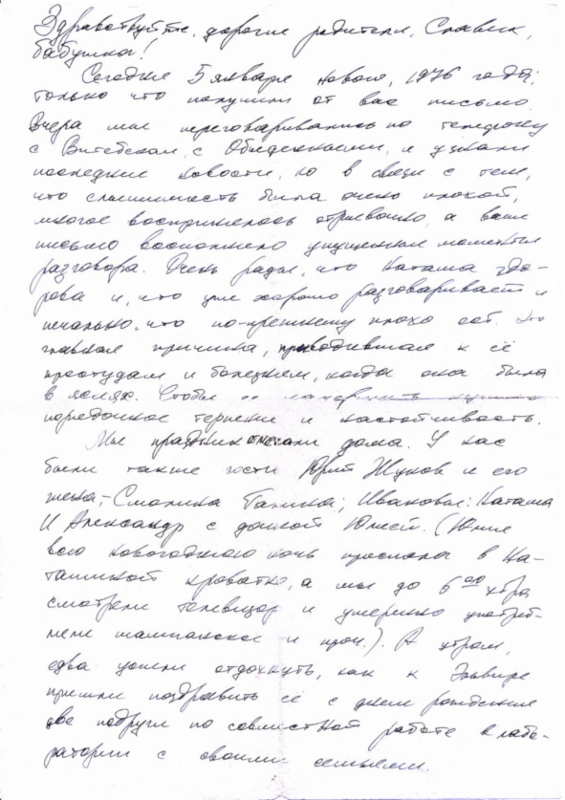 Здравствуйте, дорогие родители, Славик,
бабушка!
Сегодня 5 января нового, 1976 года;
только что получили от вас письмо.
Вчера мы переговаривались по телефону
с Витебском, с Обиденными, и узнали
последние новости, но в связи с тем,
что слышимость была очень плохой,
многое воспринялось отрывочно, а ваше
письмо восполнило упущенные моменты
разговора. Очень рады, что Наташа здо-
рова и, что уже хорошо разговаривает и
печально, что по-прежнему плохо ест. Это
главная причина, приводившая к её
простудам и болезням, когда она была
в яслях. Чтобы накормить нужно
порядочное терпение и настойчивость.
Мы праздник встречали дома. У нас
были также гости Юрий Жуков и его
жена; Смолина Галина; Ивановы: Наташа
и Александр с дочкой Юлей. (Юля
всю новогоднюю ночь проспала в На-
ташиной кроватке, а мы до 6 00 утра
смотрели телевизор и умеренно употреб-
ляли шампанское и проч.). А утром,
едва успели отдохнуть, как к Эльвире
пришли поздравить её с днем рождения
две подруги по совместной работе в лабо-
ратории с своими семьями.